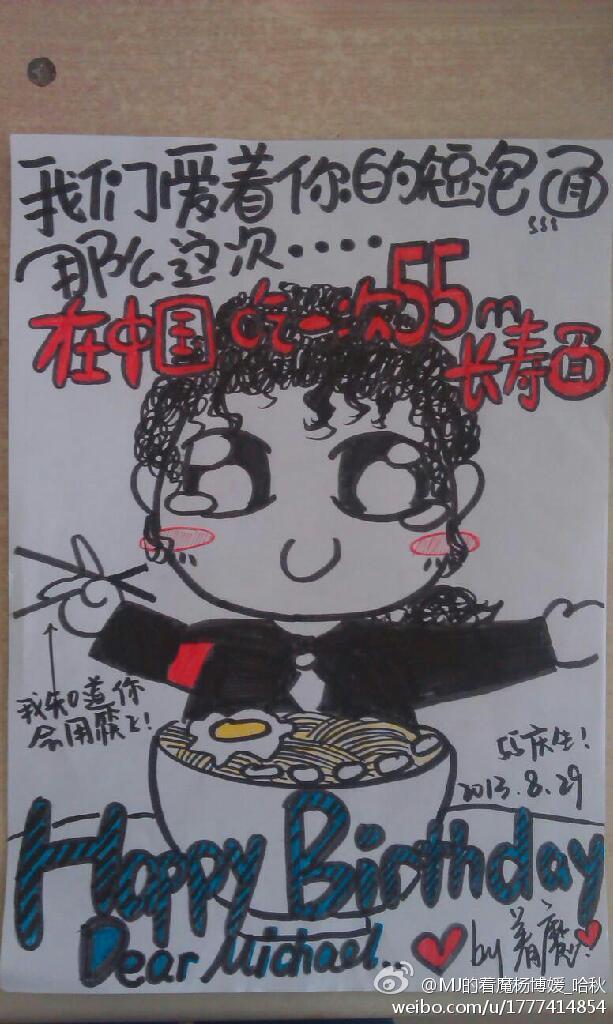 我们爱着你的短泡面
那么这次····
在中国吃一次55m
长寿面
我知道你
会用筷子!
55庆生!
2013.8.29
Happy Birthday
Dear Michael...
by 着魔
@MJ的着魔杨博媛_哈秋
weibo.com/u/1777414854